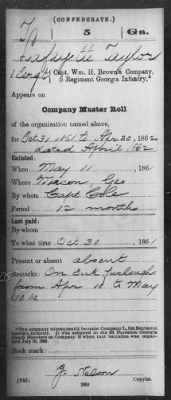 (CONFEDERATE.)
T 5 Ga.
Lafayette Taylor
1 Sergt, Capt. Wm. H. Brown's Company,
5 Regiment Georgia Infantry.*
Appears on
Company Muster Roll
of the organization named above,
for Oct 31 1861 to Apr 30, 1862
dated April 1862
Enlisted:
When May 11, 1861
Where Macon Geo
By whom Capt Cole
Period 12 months
Last paid:
By whom
To what time Oct 30, 1861
Present or absent absent
Remarks: On Sick Furlough
from Apr 10 to May
10.62
*This company subsequently became Company
Book mark:
J. Nelson
(642) Copyist.